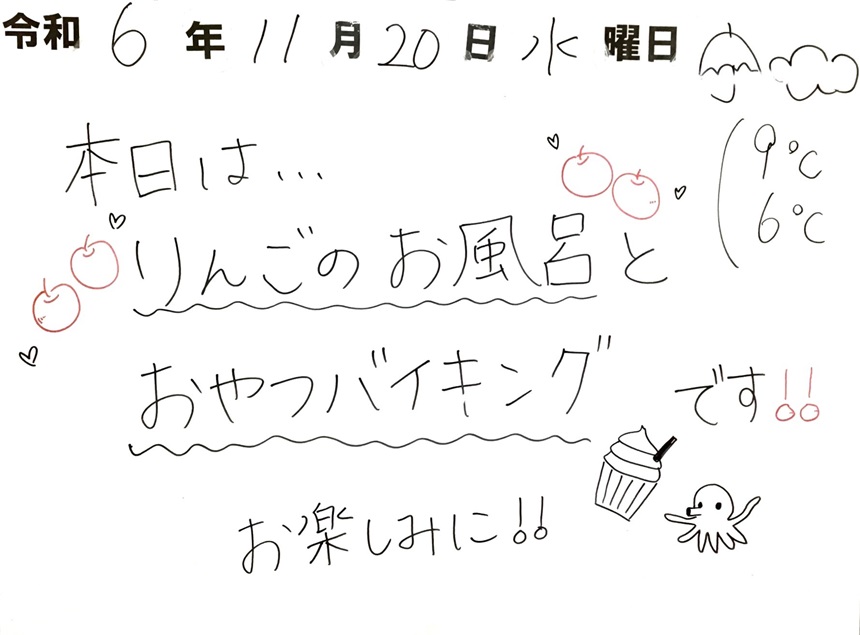 令和 6 年 11 月 20 日 水 曜日
9℃
6℃
本日は...
りんごのお風呂と
おやつバイキングです!!
お楽しみに!!